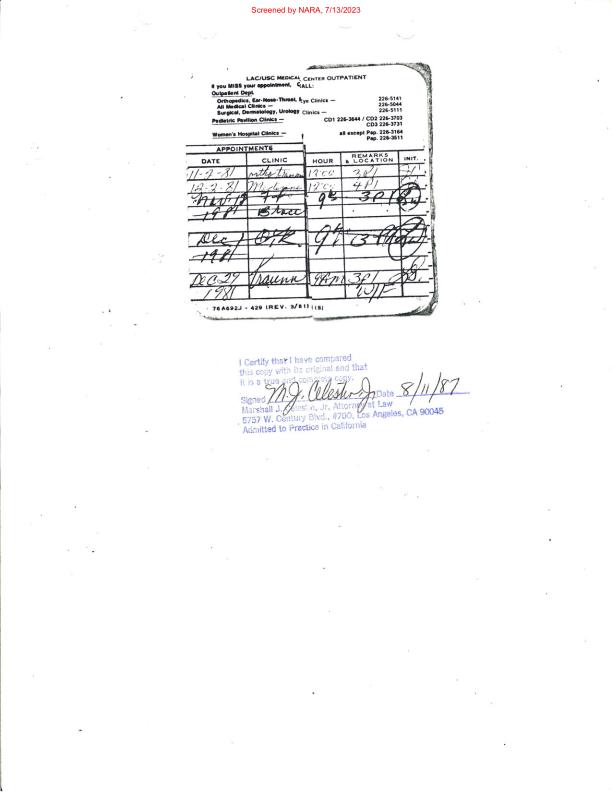 Screened by NARA, 7/13/2023
LAC/USC MEDICAL CENTER OUTPATIENT
If you MISS your appointment, CALL:
Outpatient Dept.
Orthopedics, Ear-Nose-Throat, Eye Clinics — 226-5141
All Medical Clinics — 226-5044
Surgical, Dermatology, Urology Clinics — 226-5111
Pediatric Pavilion Clinics — CD1 226-3644 / CD2 226-3703
CD3 226-3731
Women's Hospital Clinics — all except Pap. 226-3164
Pap. 226-3511
APPOINTMENTS
DATE CLINIC HOUR REMARKS & LOCATION INIT.
11-2-81 12:00 3P1
12-2-81 Medicine 12:00 4P1
Nov. 18 9 3P1
1981 Brace
Dec 1 9
1981
Dec 29 Trauma 9Am 3P1
1981
76A692J - 429 (REV. 3/81) (IS)
I Certify that I have compared
this copy with its original and that
it is a true and complete copy.
Signed M.J. Celestin Jr Date 8/11/87
Marshall J. Celestin, Jr. Attorney at Law
5757 W. Century Blvd., #700, Los Angeles, CA 90045
Admitted to Practice in California